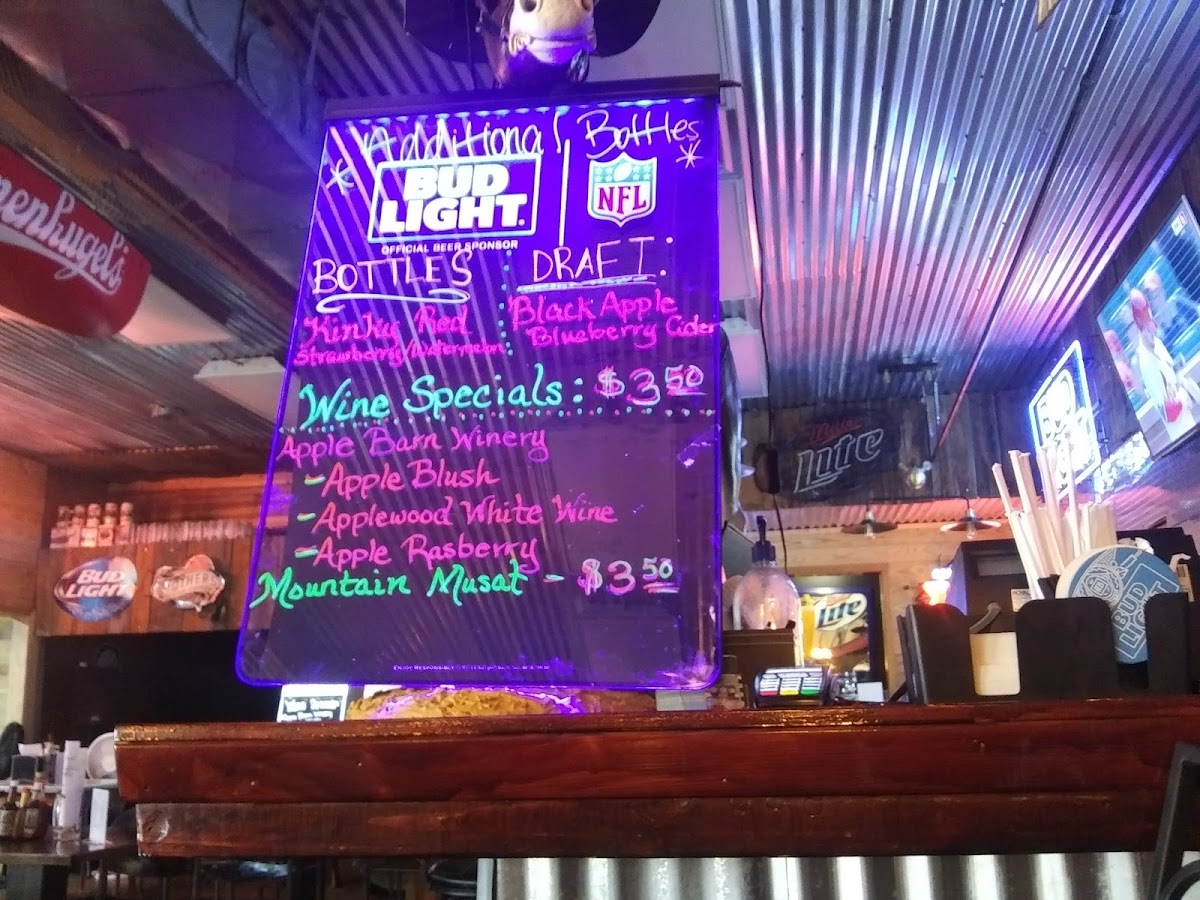 * Additional Bottles *
BUD LIGHT.
NFL
OFFICIAL BEER SPONSOR
BOTTLES
DRAFT:
Kinky Red
Strawberry/Watermelon
Black Apple
Blueberry Cider
Wine Specials: $3.50
Apple Barn Winery
- Apple Blush
- Applewood White Wine
- Apple Rasberry
Mountain Musat - $3.50
ENJOY RESPONSIBLY
nenkugel's
BUD LIGHT
Miller Lite
Lite
BUD LIGHT